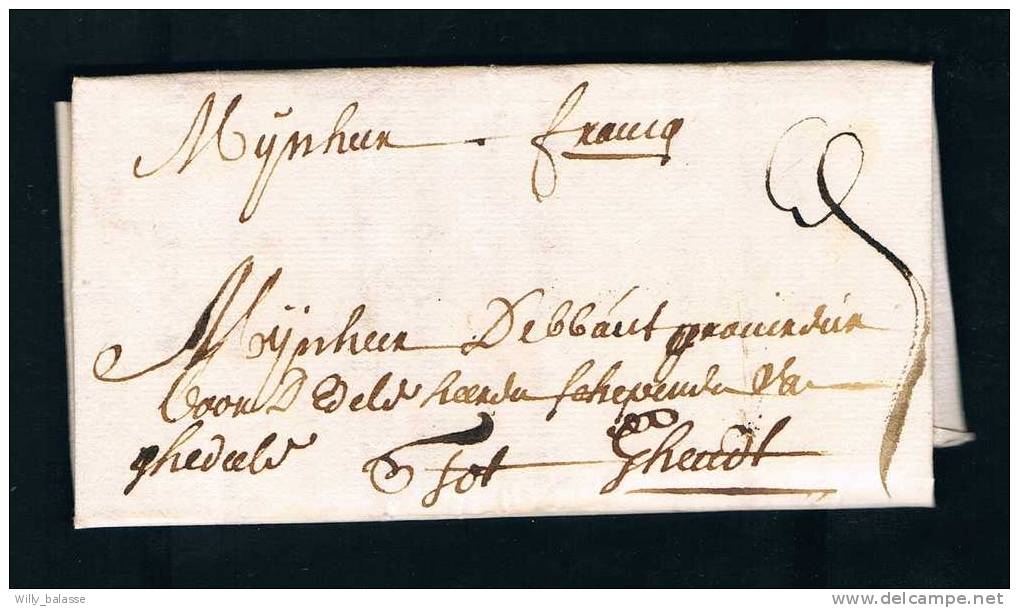 Mijnheer francq
Mijnheer Debbaut procureur
voor D Edele heeren schepenen van
ghedeele Tot Ghendt
Willy_balasse
delcampe.net